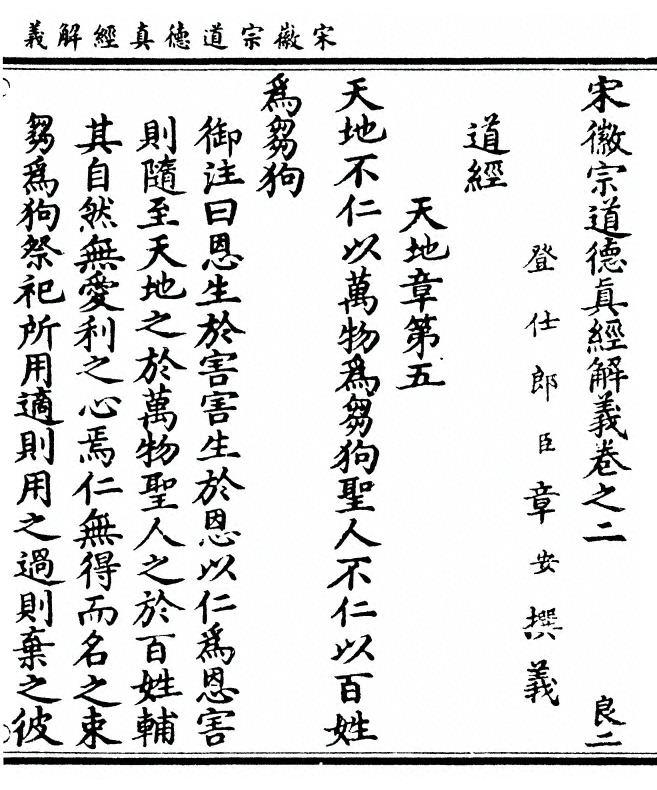 宋徽宗道德真經解義
宋徽宗道德眞經解義卷之二 良二
登仕郎臣章安撰義
道經
天地章第五
天地不仁以萬物爲芻狗聖人不仁以百姓
爲芻狗
御注曰恩生於害害生於恩以仁爲恩害
則隨至天地之於萬物聖人之於百姓輔
其自然無愛利之心焉仁無得而名之束
芻爲狗祭祀所用適則用之過則棄之彼